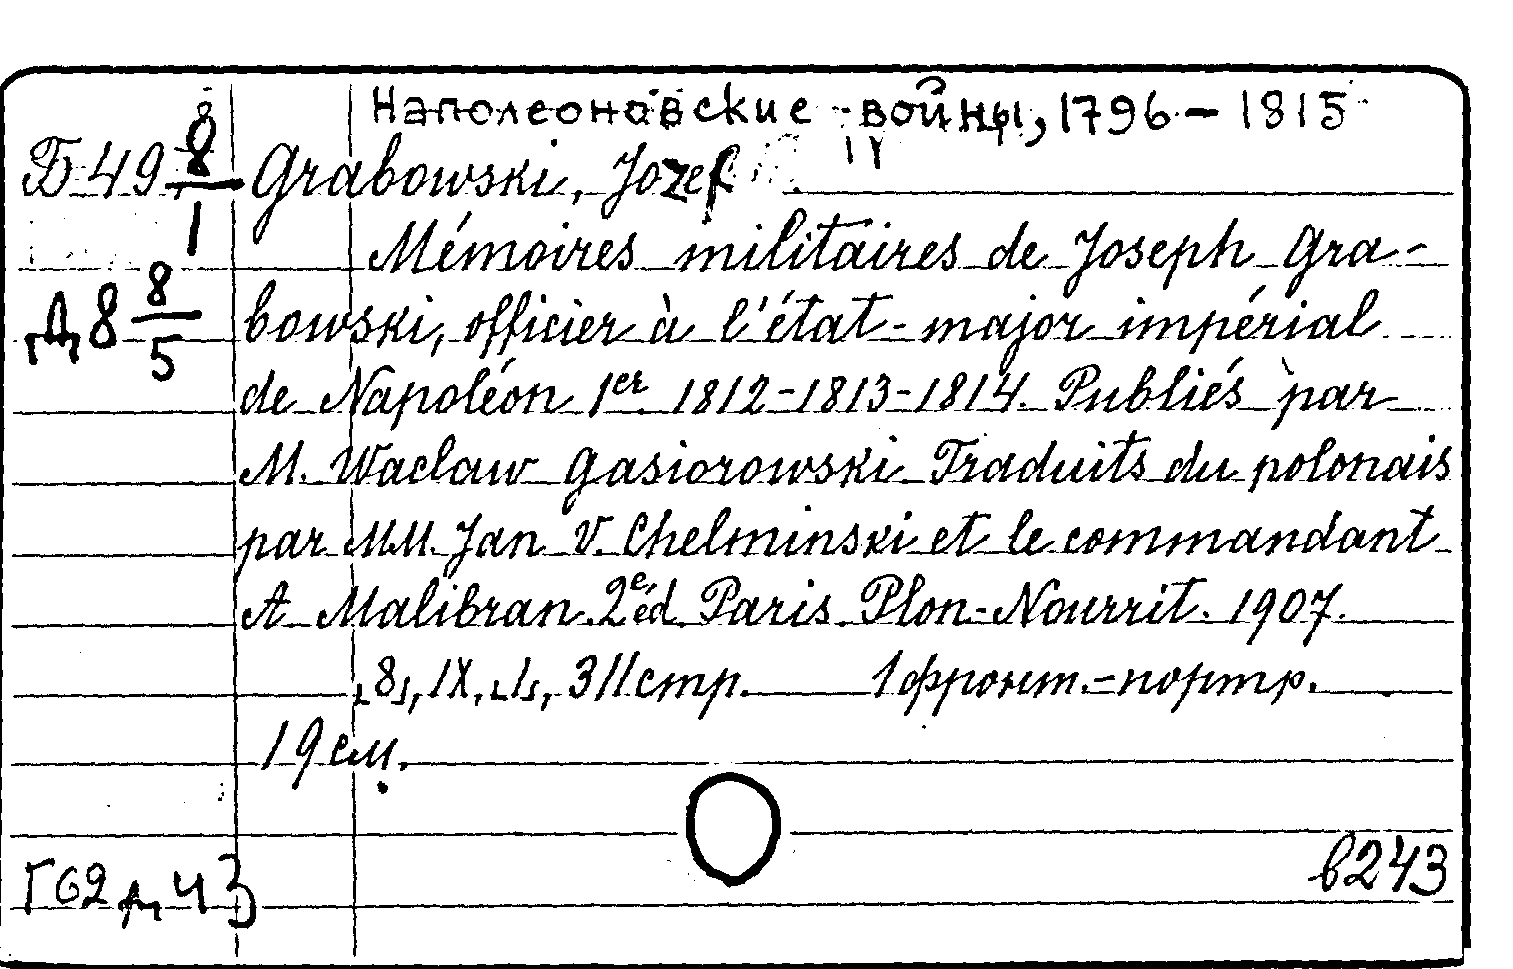 Наполеоновские войны, 1796 - 1815
Б 49 8/1 Grabowski, Jozef
Mémoires militaires de Joseph Gra-
Д 8 8/5 bowski, officier à l'état-major impérial
de Napoléon 1er 1812-1813-1814. Publiés par
M. Waclaw Gasiorowski. Traduits du polonais
par MM. Jan V. Chelminski et le commandant
A Malibran. 2e éd. Paris. Plon-Nourrit. 1907.
[8], IX, [1], 311 стр. 1 фронт.-портр.
19 см.
в243
Г62 д 43